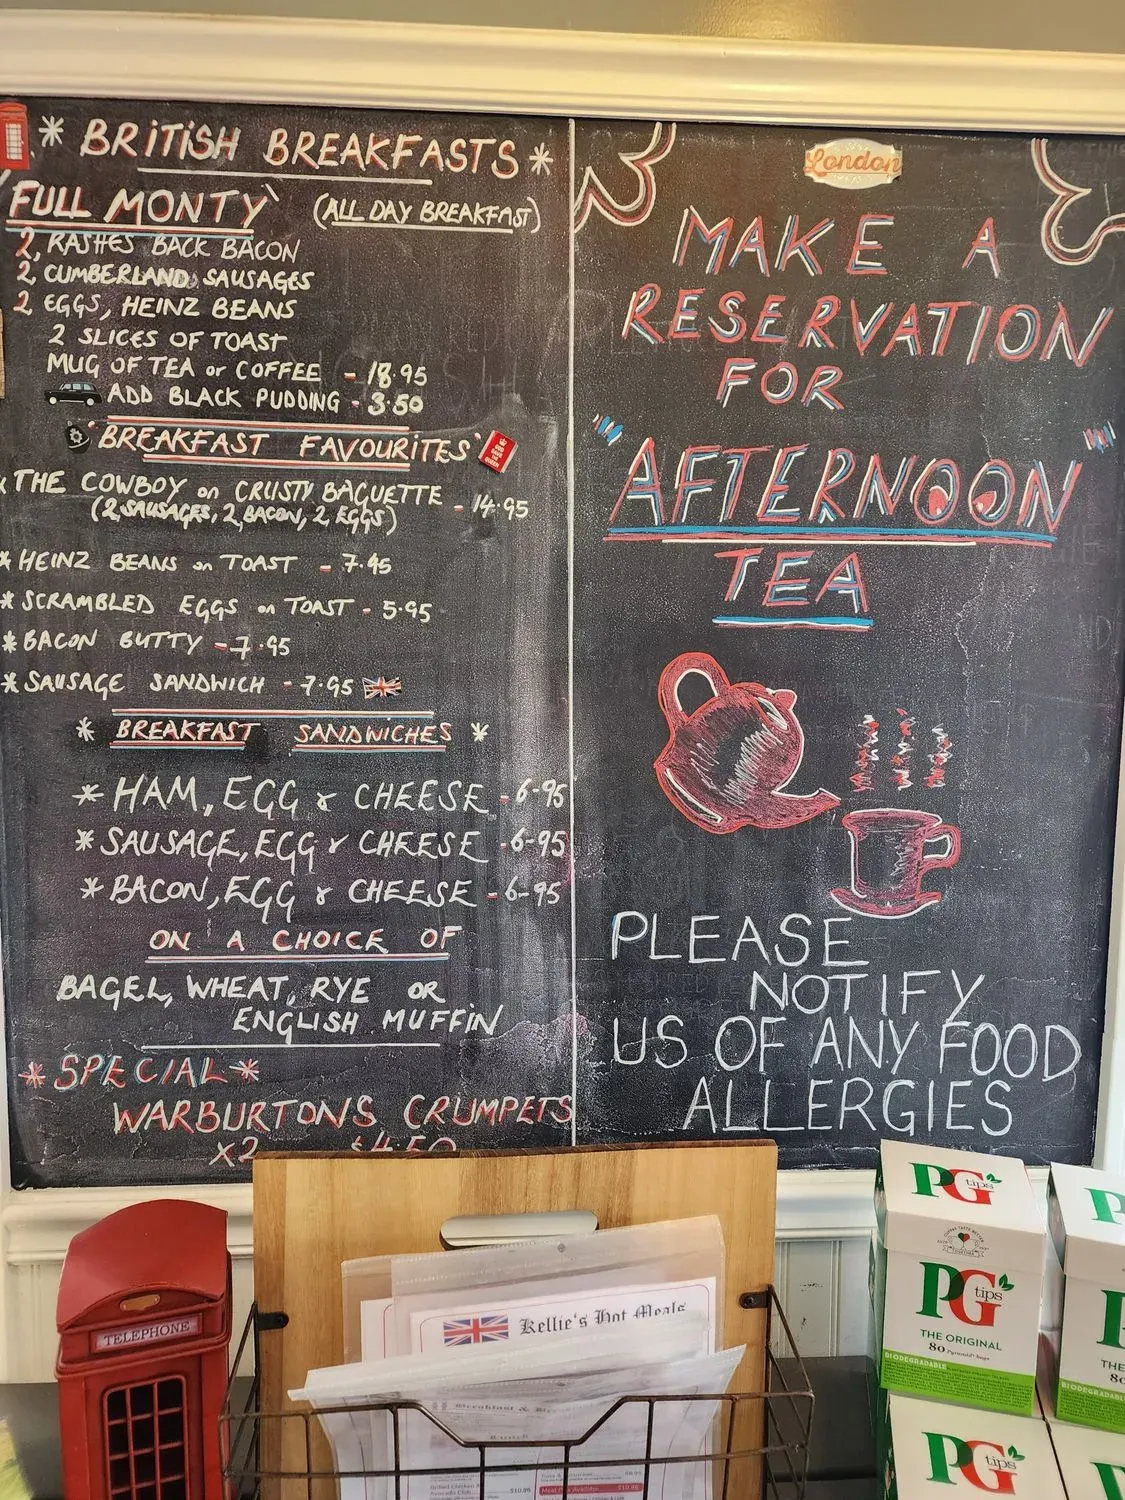 * BRITISH BREAKFASTS *
"FULL MONTY" (ALL DAY BREAKFAST)
2, RASHES BACK BACON
2 CUMBERLAND SAUSAGES
2 EGGS, HEINZ BEANS
2 SLICES OF TOAST
MUG OF TEA or COFFEE - 18.95
ADD BLACK PUDDING - 3.50
"BREAKFAST FAVOURITES"
* THE COWBOY on CRUSTY BAGUETTE - 14.95
(2 SAUSAGES, 2 BACON, 2 EGGS)
* HEINZ BEANS on TOAST - 7.45
* SCRAMBLED EGGS on TOAST - 5.95
* BACON BUTTY - 7.95
* SAUSAGE SANDWICH - 7.95
* BREAKFAST SANDWICHES *
* HAM, EGG & CHEESE - 6-95
* SAUSAGE, EGG & CHEESE - 6-95
* BACON, EGG & CHEESE - 6-95
ON A CHOICE OF
BAGEL, WHEAT, RYE OR
ENGLISH MUFFIN
* SPECIAL *
WARBURTONS CRUMPETS
X2 $4.50
London
MAKE A
RESERVATION
FOR
"AFTERNOON"
TEA
PLEASE
NOTIFY
US OF ANY FOOD
ALLERGIES
TELEPHONE
Kellie's Hot Meals
$10.95
PG tips
PG tips
THE ORIGINAL
80 Pyramid bags
BIODEGRADABLE
BIODEGRADABLE
PG tips